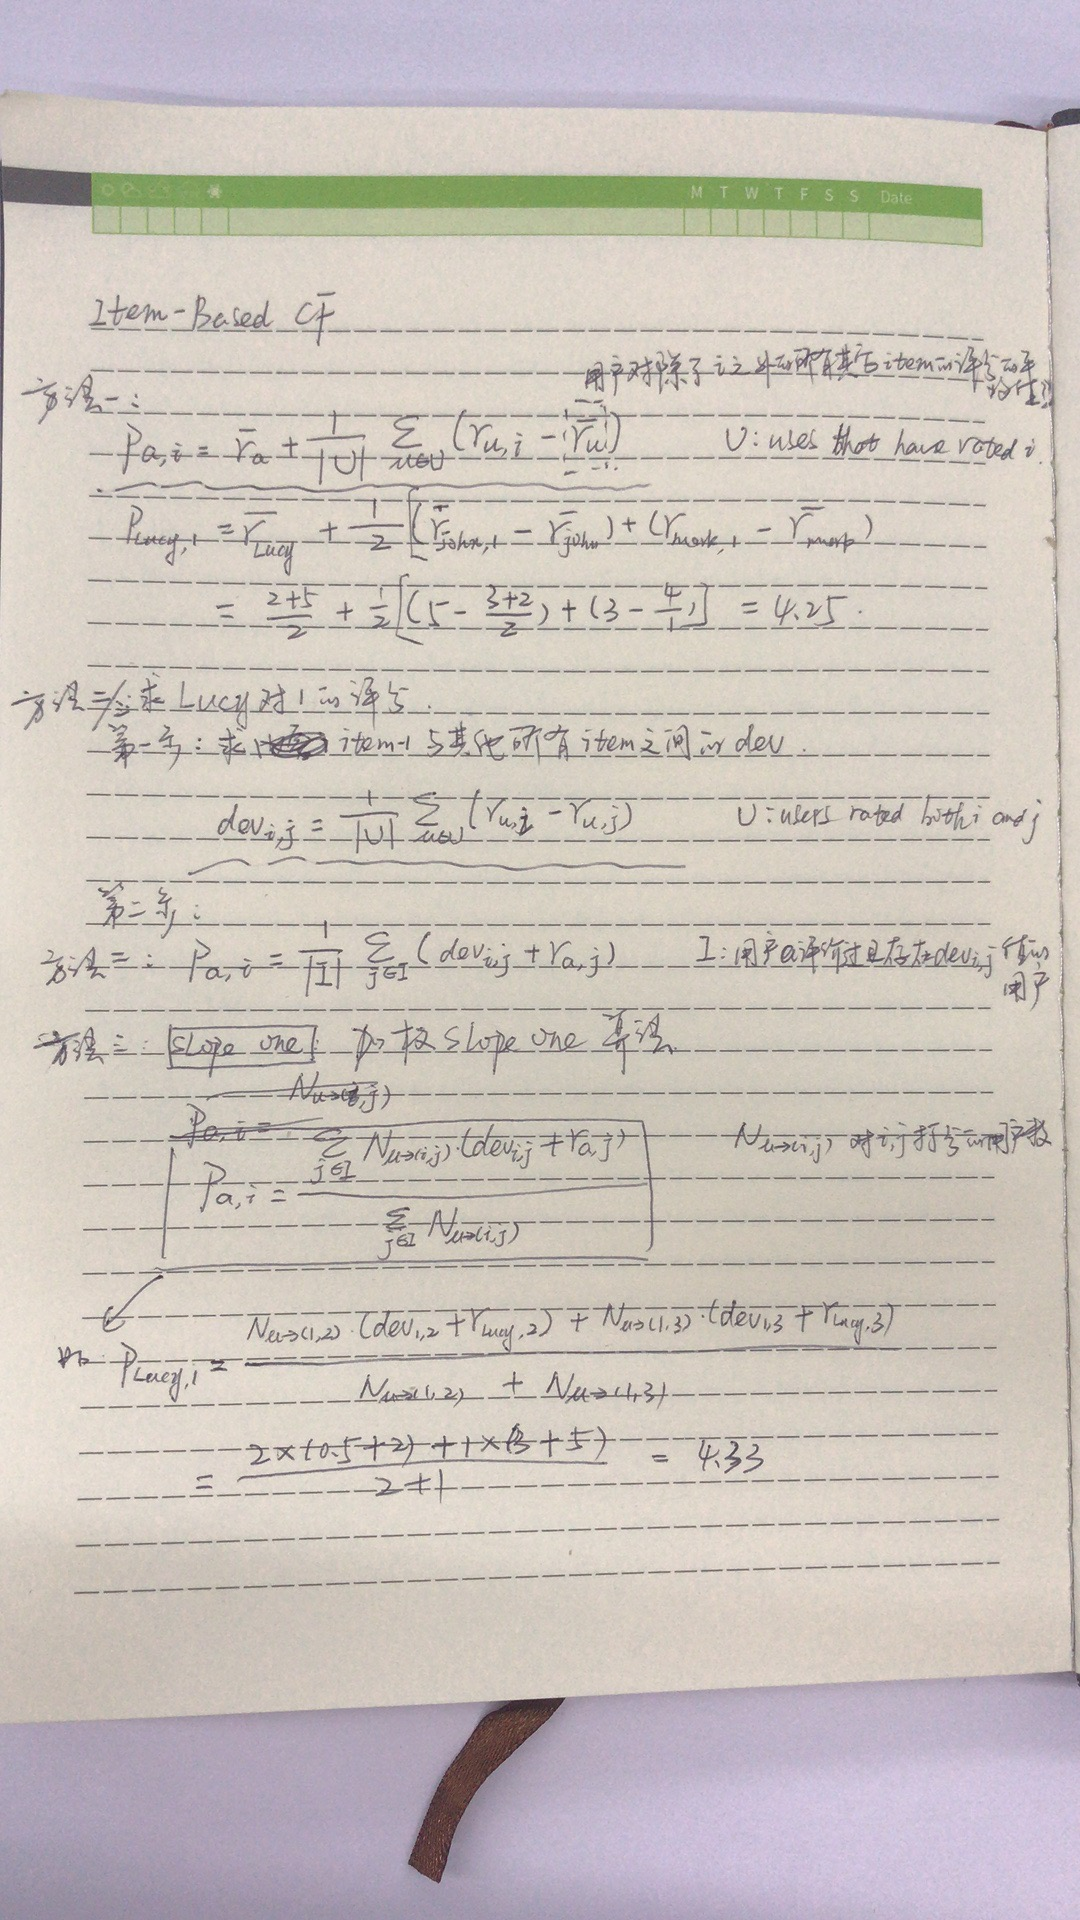 M T W T F S S Date
Item-Based CF
用户对除了i之外的所有其它item的评分的平均值
方法一:
Pa,i = r̄a + 1/|U| Σu∈U (ru,i - r̄u) U: uses that have rated i.
PLucy,1 = r̄Lucy + 1/2 [(r̄john,1 - r̄john) + (rmark,1 - r̄mark)
= (2+5)/2 + 1/2 [(5 - (3+2)/2) + (3 - 4/1)] = 4.25.
方法二/三: 求Lucy对1的评分.
第一步: 求 item-1 与其他所有item之间的dev.
devi,j = 1/|U| Σu∈U (ru,i - ru,j) U: users rated both i and j
第二步:
方法二: Pa,i = 1/|I| Σj∈I (devi,j + ra,j) I: 用户a评价过且存在devi,j值的用户
方法三: Slope one 加权Slope one 算法.
Nu→(i,j)
Pa,i =
Pa,i = Σj∈I Nu→(i,j)·(devi,j + ra,j) / Σj∈I Nu→(i,j) Nu→(i,j) 对i,j打分的用户数
如 PLucy,1 = Nu→(1,2)·(dev1,2 + rLucy,2) + Nu→(1,3)·(dev1,3 + rLucy,3) / Nu→(1,2) + Nu→(1,3)
= 2×(0.5+2) + 1×(3+5) / 2+1 = 4.33